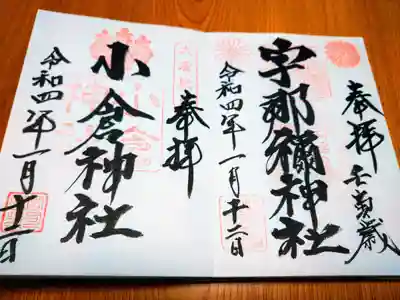 奉拝 壬寅歳
宇那禰神社
令和四年一月十二日
奉拝
小倉神社
令和四年一月十一日